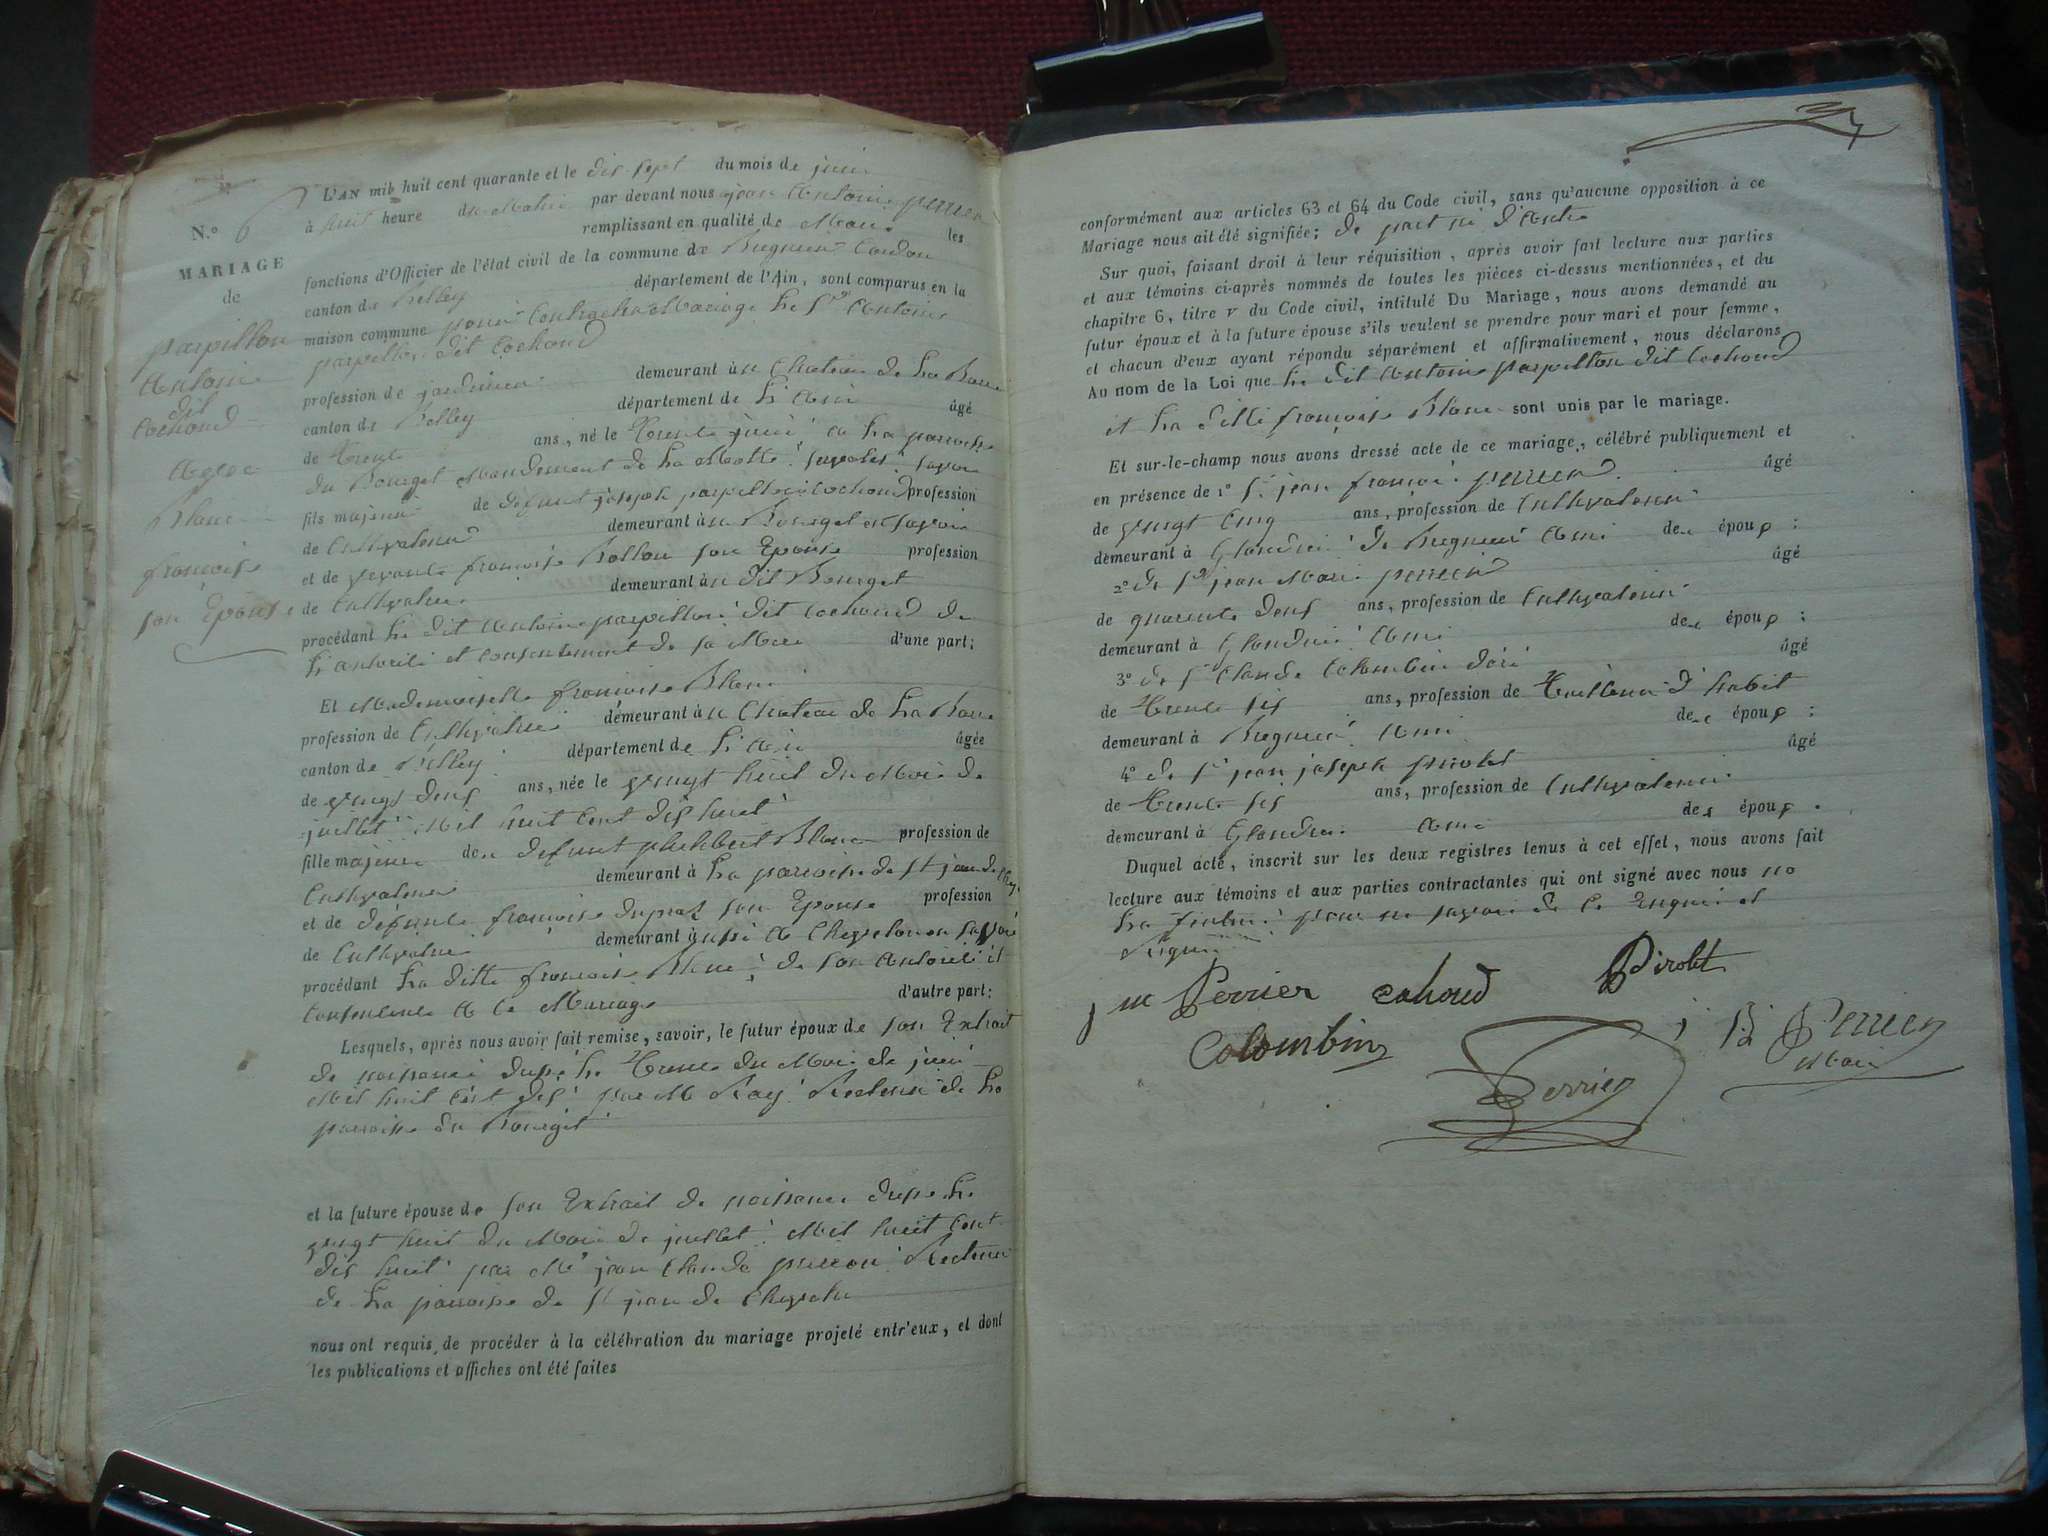 L'AN mil huit cent quarante et le dix sept du mois de juin
N.º 6
à huit heure du Matin par devant nous jean Antoine perrier
remplissant en qualité de Maire les
MARIAGE
fonctions d'Officier de l'état civil de la commune de Bregnier Cordon
de
canton de Belley département de l'Ain, sont comparus en la
maison commune pour Contracter Mariage Le Sr Antoine
parpillon
parpillon dit Cochoud
Antoine
dit
Cochoud
profession de jardinier demeurant au Chateau de La Barre
canton de Belley département de L'Ain âgé
Avec
de Trente ans, né le Trente juin a La paroisse
du Bourget Mandement de La Motte Savoie
Blanc
fils majeur de defunt joseph parpillon Cochoud profession
de Cultivateur demeurant au Bourget en Savoie
françoise
et de vivante françoise Bollon son Epouse profession
son Epouse
de Cultivatrice demeurant au dit Bourget
procédant Le dit Antoine parpillon dit Cochoud de
L'autorité et Consentement de sa Mere d'une part;
Et Mademoiselle françoise Blanc
profession de Cultivatrice demeurant au Chateau de La Barre
canton de Belley département de L'Ain âgée
de vingt deux ans, née le vingt huit du Mois de
juillet Mil huit Cent dix huit
fille majeure de defunt philibert Blanc profession de
Cultivateur demeurant à La parroisse de St jean de Chev.
et de defunte françoise Dupraz son Epouse profession
de Cultivatrice demeurant aussi A Chevelou en Savoie
procédant La ditte françoise Blanc de son Autorité et
Consentente A Ce Mariage d'autre part;
Lesquels, après nous avoir fait remise, savoir, le futur époux de son Extrait
de naissance Dressé Le Trente du Mois de juin
Mil huit Cent dix par M Ray Recteur de La
parroisse du Bourget
et la future épouse de son Extrait de naissance Dressé Le
vingt huit du Mois de juillet Mil huit Cent
dix huit par Mr jean Claude Recteur
de La parroisse de St jean de Chevelu
nous ont requis de procéder à la célébration du mariage projeté entr'eux, et dont
les publications et affiches ont été faites
conformément aux articles 63 et 64 du Code civil, sans qu'aucune opposition à ce
Mariage nous ait été signifiée; de part ni d'Autre
Sur quoi, faisant droit à leur réquisition, après avoir fait lecture aux parties
et aux témoins ci-après nommés de toutes les pièces ci-dessus mentionnées, et du
chapitre 6, titre v du Code civil, intitulé Du Mariage, nous avons demandé au
futur époux et à la future épouse s'ils veulent se prendre pour mari et pour femme,
et chacun d'eux ayant répondu séparément et affirmativement, nous déclarons
Au nom de la Loi que Le dit Antoine parpillon dit Cochoud
et La ditte françoise Blanc sont unis par le mariage.
Et sur-le-champ nous avons dressé acte de ce mariage, célébré publiquement et
en présence de 1º Sr jean françois perrier âgé
de vingt Cinq ans, profession de Cultivateur
demeurant à Glandieu de Bregnier Ami des époux :
2º de Sr jean Marie perrier âgé
de quarente deux ans, profession de Cultivateur
demeurant à Glandieu Ami des époux :
3º de Sr Claude Colombin âgé
de Trente six ans, profession de Tailleur d'habit
demeurant à Bregnier Ami des époux :
4º de Sr jean joseph pirolet âgé
de Trente six ans, profession de Cultivateur
demeurant à Glandieu Ami des époux .
Duquel acte, inscrit sur les deux registres tenus à cet effet, nous avons fait
lecture aux témoins et aux parties contractantes qui ont signé avec nous no
La future pour ne savoir de Ce Enquis et
Requis
j m Perrier cahoud Pirolet
Colombin Perrier
j A Perrier
Maire